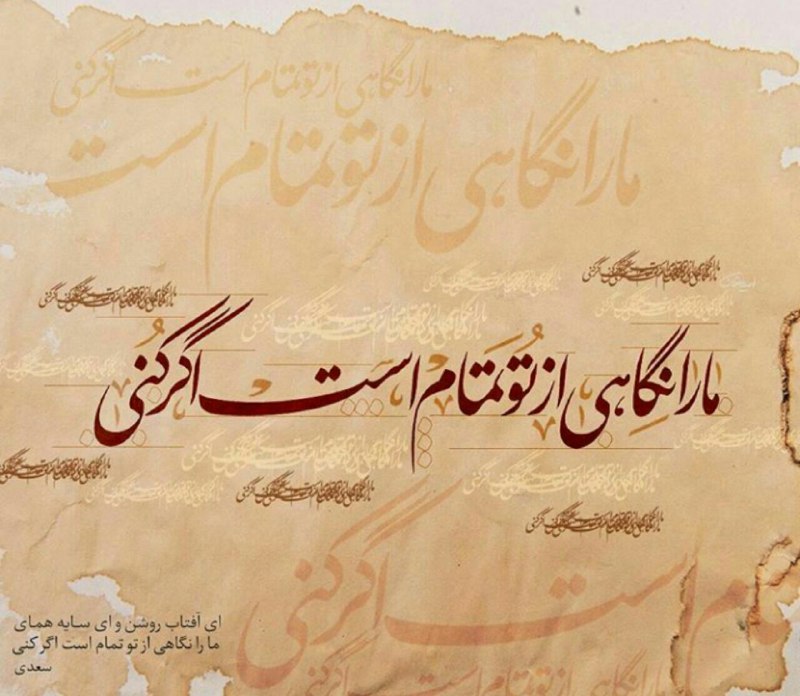 ما را نگاهی از تو تمام است اگر کنی
ما را نگاهی از تو تمام است
ما را نگاهی از تو تمام است اگر کنی
تمام است اگر کنی
ای آفتاب روشن و ای سایه همای
ما را نگاهی از تو تمام است اگر کنی
سعدی